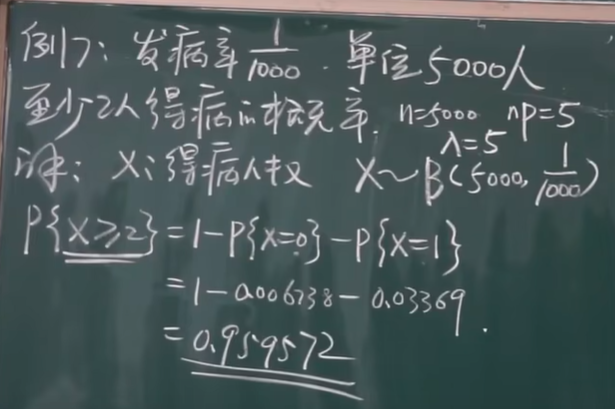 例17: 发病率 1/1000 . 单位5000人
至少2人得病的概率. n=5000 np=5
λ=5
解: X: 得病人数 X~B(5000, 1/1000)
P{X≥2} = 1-P{X=0}-P{X=1}
= 1-0.006738-0.03369
= 0.959572.